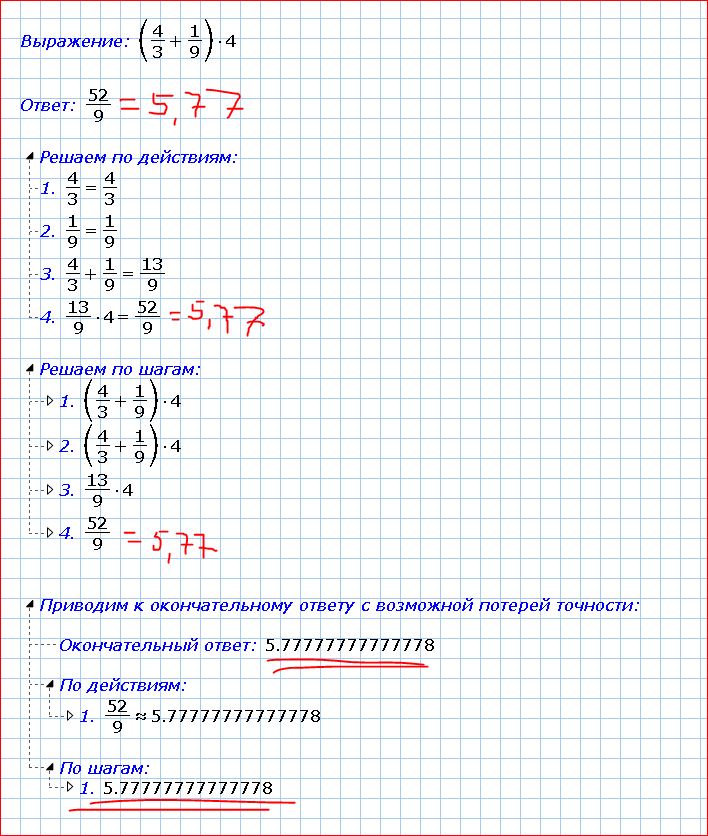 Выражение: (4/3 + 1/9) · 4
Ответ: 52/9 = 5,77
Решаем по действиям:
1. 4/3 = 4/3
2. 1/9 = 1/9
3. 4/3 + 1/9 = 13/9
4. 13/9 · 4 = 52/9 = 5,77
Решаем по шагам:
1. (4/3 + 1/9) · 4
2. (4/3 + 1/9) · 4
3. 13/9 · 4
4. 52/9 = 5,77
Приводим к окончательному ответу с возможной потерей точности:
Окончательный ответ: 5.77777777777778
По действиям:
1. 52/9 ≈ 5.77777777777778
По шагам:
1. 5.77777777777778